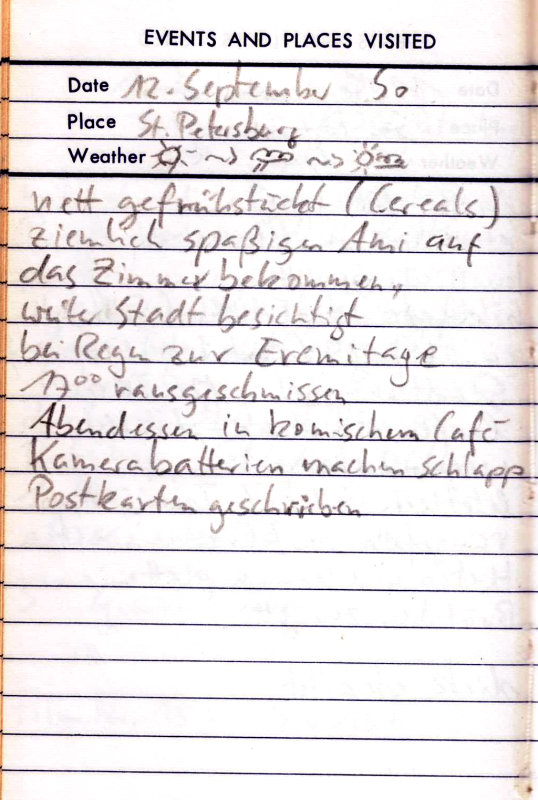 EVENTS AND PLACES VISITED
Date 12. September So
Place St. Petersburg
Weather
nett gefrühstückt (Cereals)
ziemlich spaßigen Ami auf
das Zimmer bekommen,
weiter Stadt besichtigt
bei Regen zur Eremitage
17⁰⁰ rausgeschmissen
Abendessen in komischem Café
Kamerabatterien machen schlapp
Postkarten geschrieben